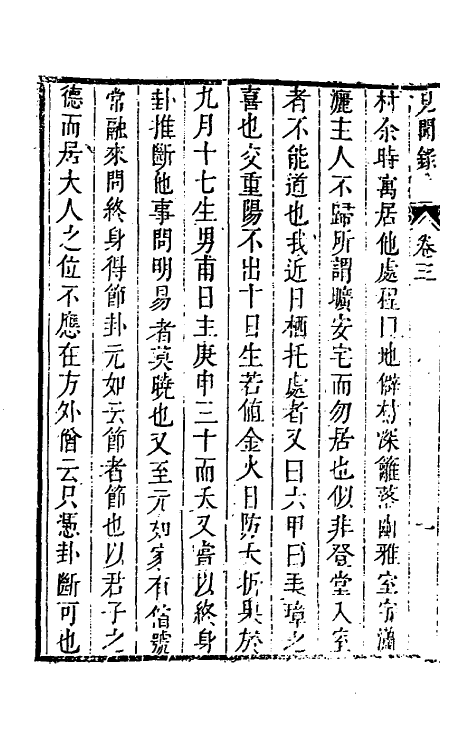 見聞錄 卷三 一
村余時寓居他處程曰地僻村深籬落幽雅室宇瀟
灑主人不歸所謂曠安宅而勿居也似非登堂入室
者不能道也我近日栖托處者又曰六甲曰弄璋之
喜也交重陽不出十日生若値金火日防夭折果於
九月十七生男甫日主庚申三十而夭又嘗以終身
卦推斷他事問明易者莫曉也又至元如家有僧號
常融來問終身得節卦元如云節者節也以君子之
德而居大人之位不應在方外僧云只慿卦斷可也